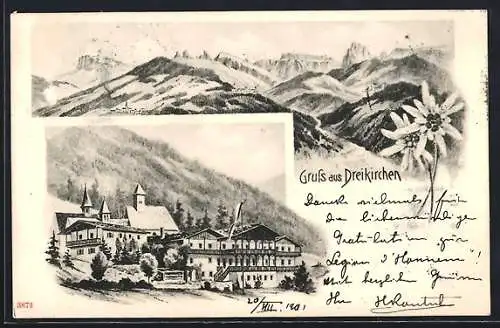 Gruß aus Dreikirchen
Danke vielmals für
die liebenswürdige
Gratulation zur
Legion d'Honneur!
Mit herzlichen Grüssen
Ihr
20/VII. 1901
3873